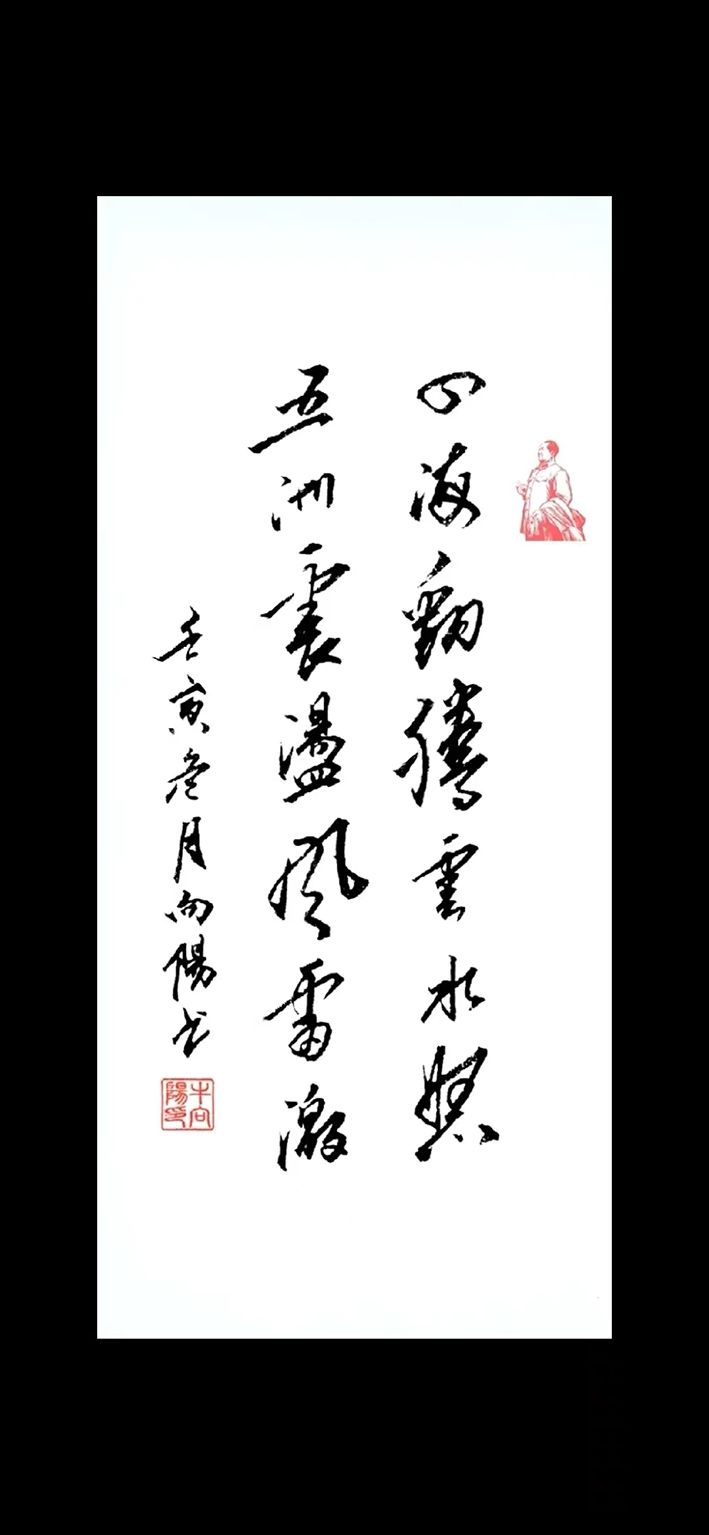 四海翻騰雲水怒
五洲震盪風雷激
壬寅叁月向陽书
牛向
陽印